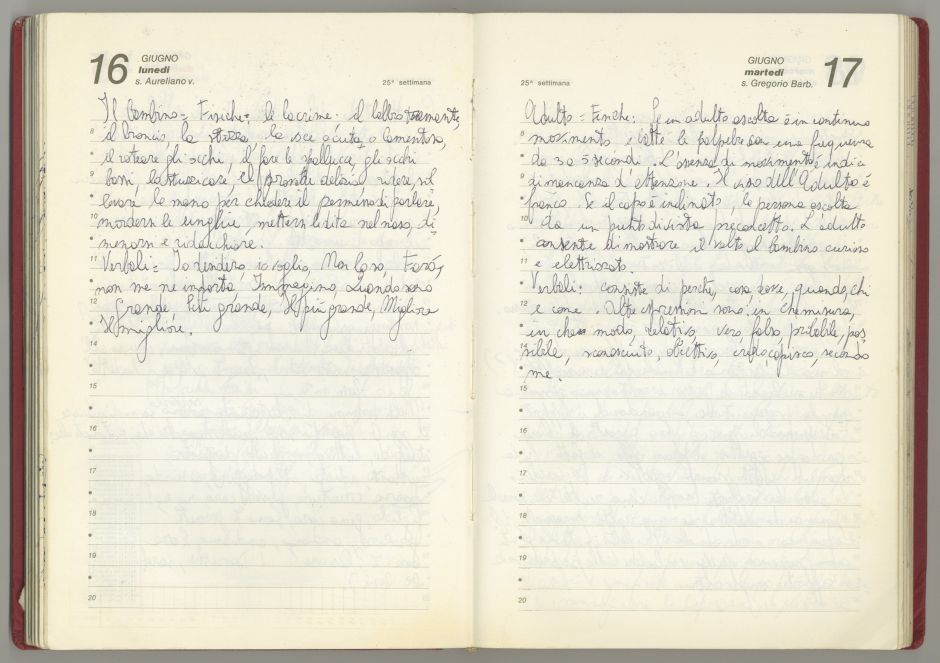 16
GIUGNO
lunedì
s. Aureliano v.
25ª settimana
Il Bambino = Fisiche = le lacrime: il labbro tremante,
8 il broncio, la stizza, la voce acuta, o lamentosa,
il roteare gli occhi, il fare le spallucce, gli occhi
9 bassi, lo stuzzicare, il delizia, ridere, il
levare la mano per chiedere il permesso di parlare,
10 mordersi le unghie, mettersi le dita nel naso, di
menarsi e ridacchiare.
11 Verbali = Io desidero, io voglio, Non lo so, Farò,
non me ne importa Immagino, Quando sono
12 Grande, Più grande, Il più grande, Migliore
Il migliore.
14
15
16
17
18
19
20
25ª settimana
GIUGNO
martedì
s. Gregorio Barb.
17
Adulto = Fisiche: Se un adulto ascolta è in continuo
8 movimento, e batte le palpebre con una frequenza
da 3 a 5 secondi. L'assenza di movimento è indice
9 di mancanza d'attenzione. Il viso dell'Adulto è
franco. Se il capo è inclinato, la persona ascolta
10 da un punto di vista preconcetto. L'adulto
consente di mostrare il volto il bambino curioso
11 e elettrizzato.
Verbali: consiste di perché, cosa, dove, quando, chi
12 e come. Altre espressioni sono: in che misura,
in che modo, relativo, vero, falso, probabile, pos
14 sibile, sconosciuto, obiettivo, capisco, secondo
me.
15
16
17
18
19
20